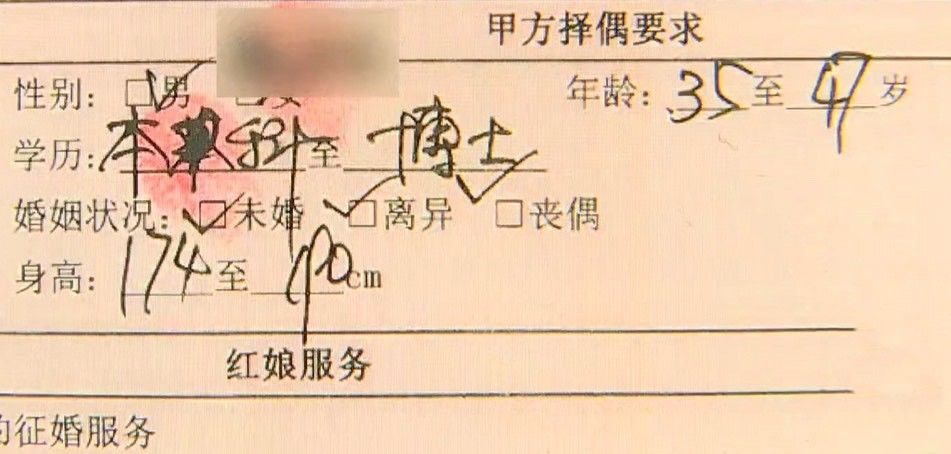 甲方择偶要求
性别：☑男 □女 年龄：35至47岁
学历：本科至博士
婚姻状况：☑未婚 ☑离异 □丧偶
身高：174至190cm
红娘服务
的征婚服务